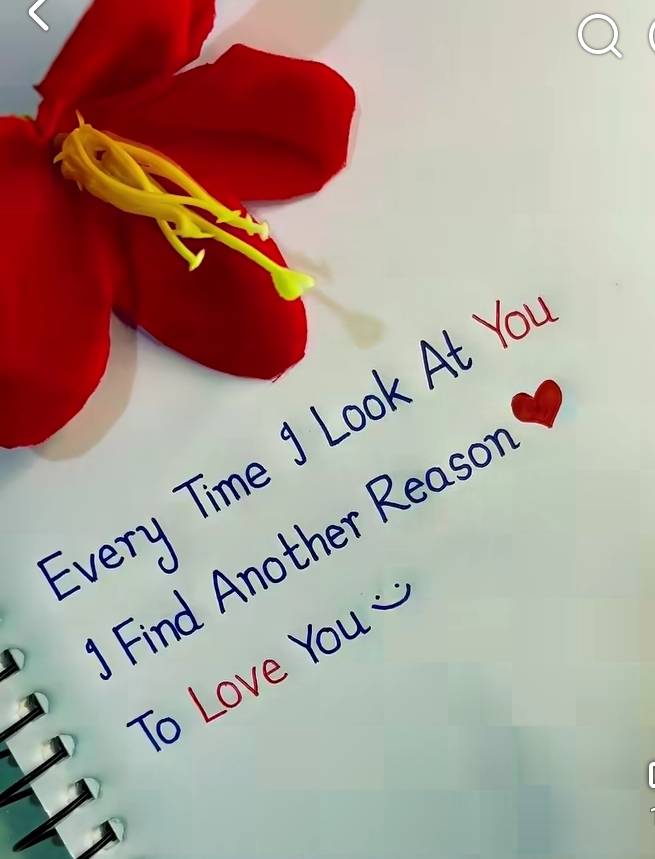 Every Time I Look At You
I Find Another Reason
To Love You